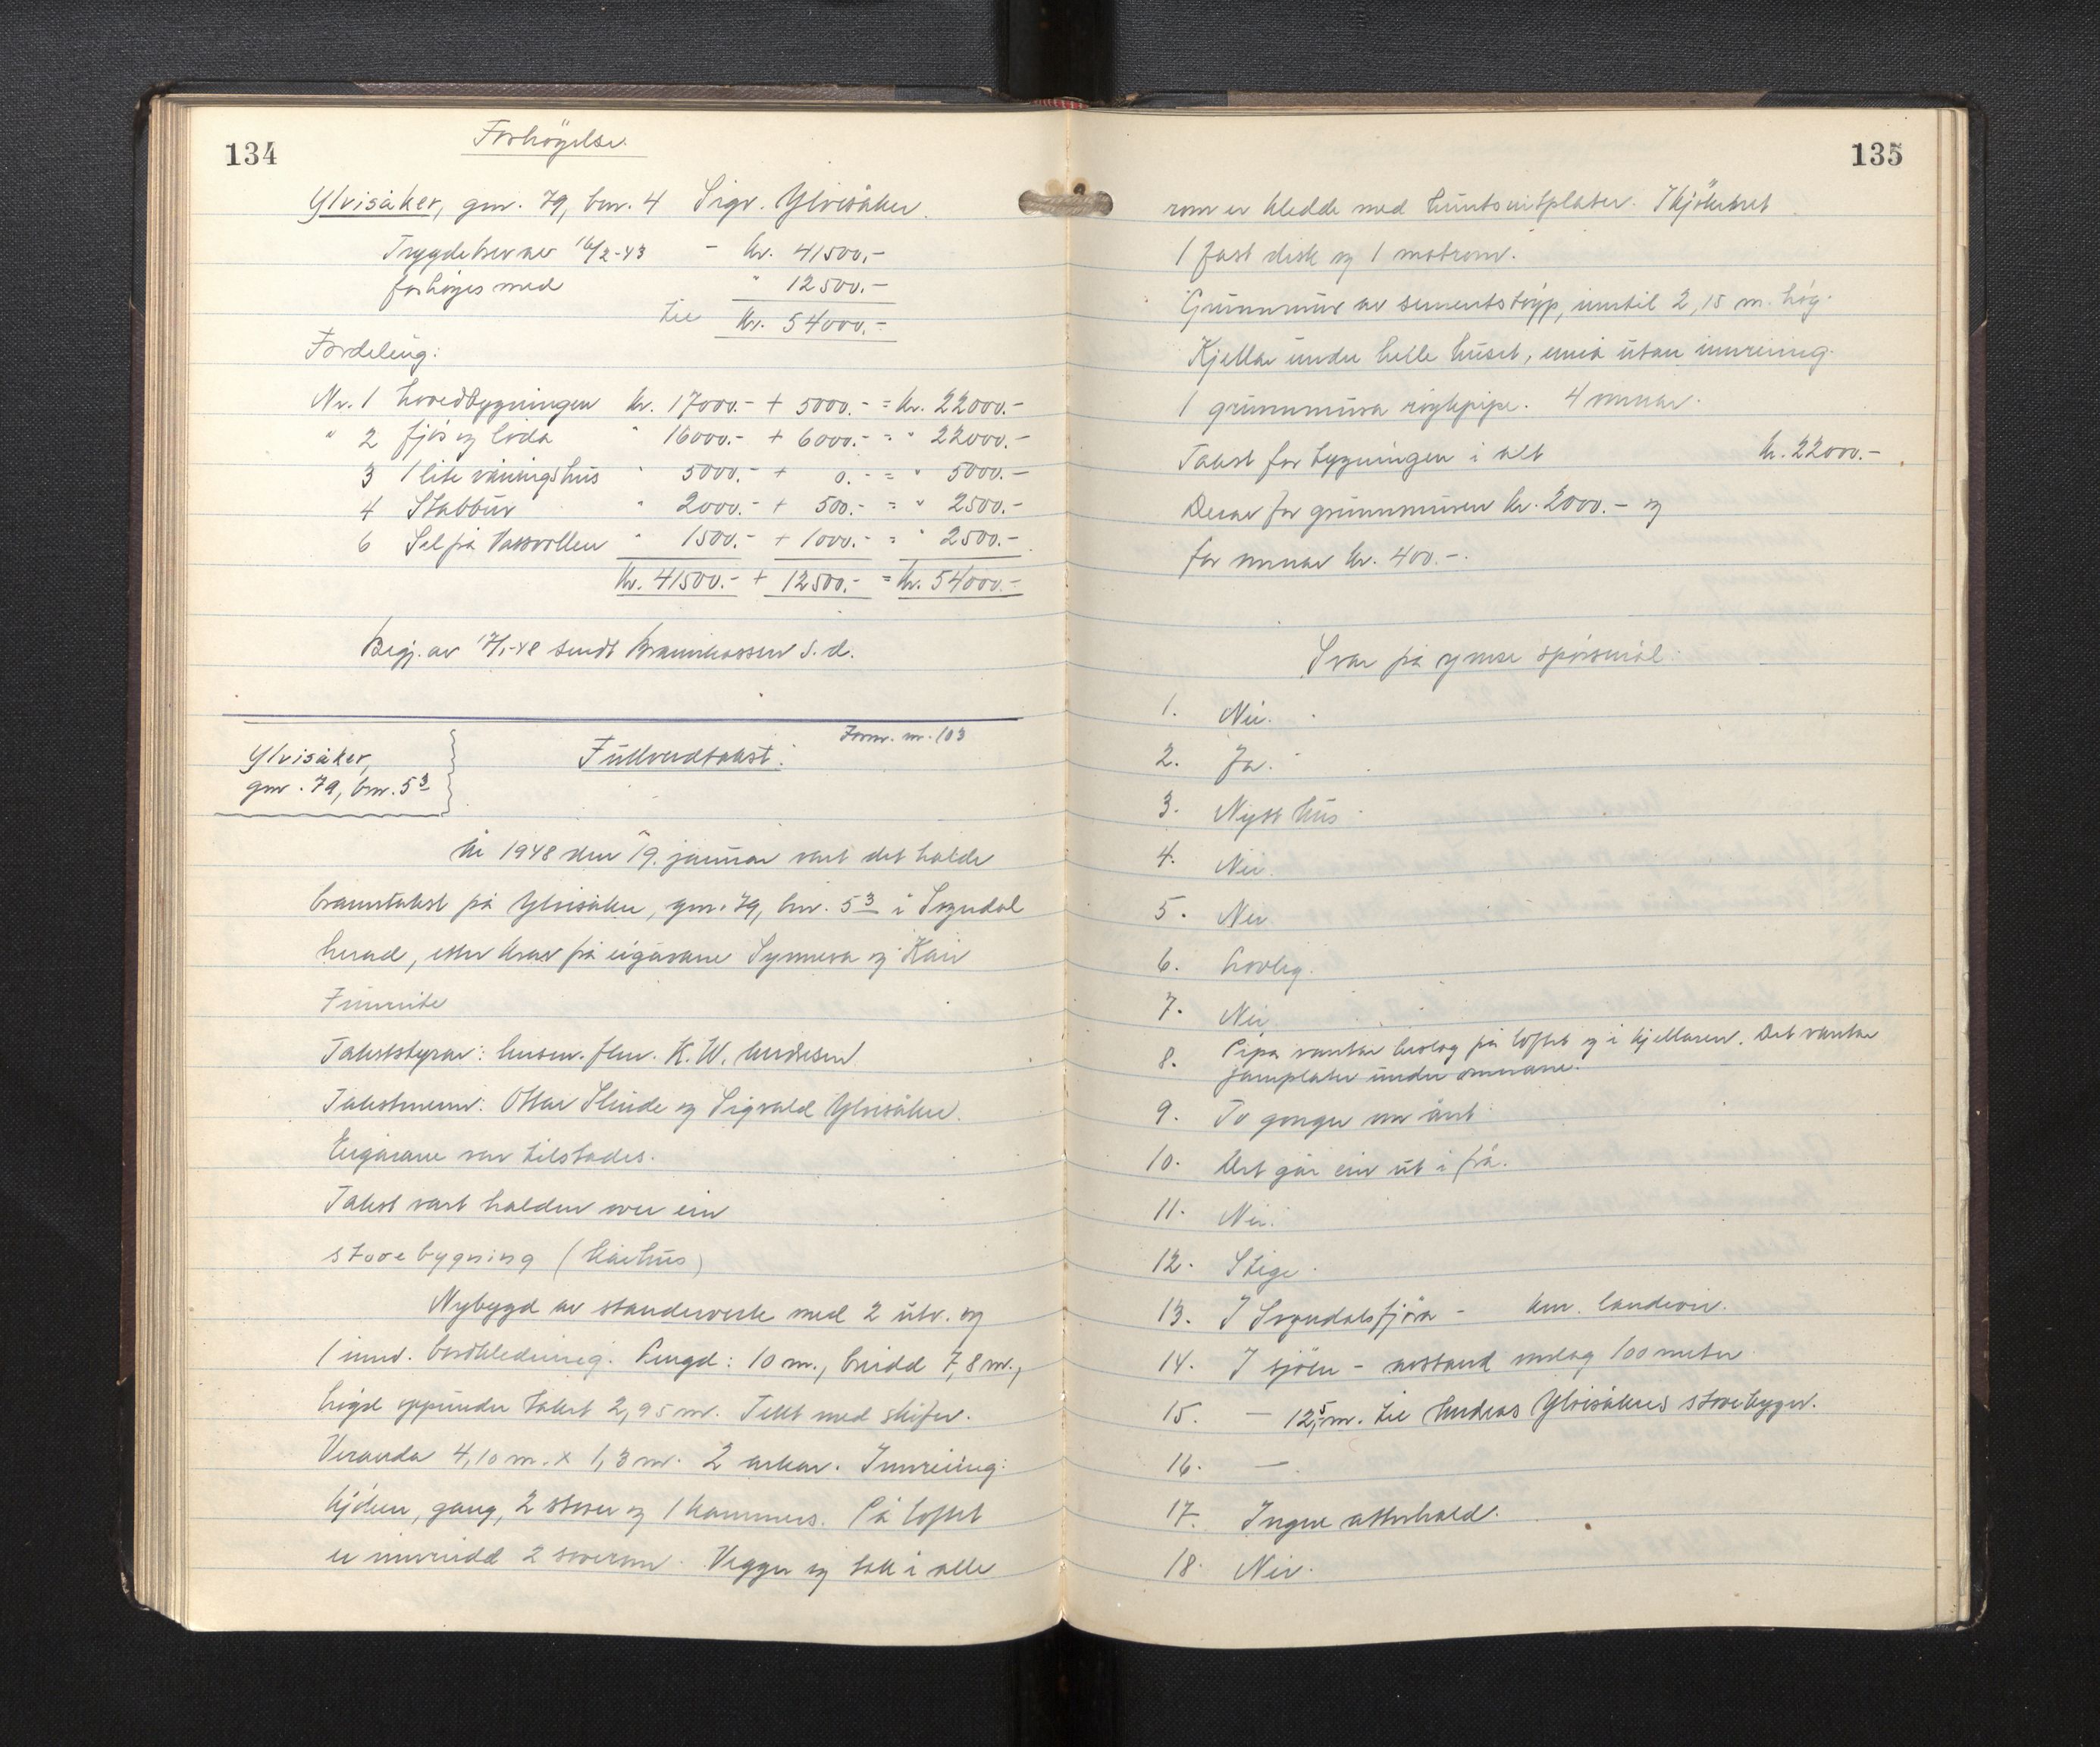 134
Forhögelse.
Ylvisaker, gnr. 79, bnr. 4 Sigv. Ylvisåker.
Trygdebrev av 16/2-43 - kr. 41500,-
forhöges med " 12500.-
til kr. 54000.-
Fordeling:
Nr. 1 hovedbygningen kr. 17000.- + 5000.- = kr. 22000.-
" 2 fjös og löda " 16000.- + 6000.- = " 22000.-
3 1 lite våningshus " 5000.- + 0.- = " 5000.-
4 Stabbur " 2000.- + 500.- = " 2500.-
6 Sel på Vassvollen " 1500.- + 1000.- = " 2500.-
kr. 41500.- + 12500.- = kr. 54000.-
Begj. av 17/1-48 sendt Brannkassen s. d.
Form. nr. 103
Ylvisaker, Fullverdtakst:
gnr. 79, bnr. 53
År 1948 den 19. januar vart det halde
branntakst på Ylvisåker, gnr. 79, bnr. 53 i Sogndal
herad, etter krav på eigarane Synneva og Kari
Timmite
Takststyrar: lensm. flm. K. W. Andresen
Takstmenn: Ottar Slinde og Sigvald Ylvisåker.
Eigarane var tilstades.
Takst vart halden over ein
stovebygning (kårhus)
Nybygd av standerverk med 2 utv. og
1 innv. bordkledning. Lengd: 10 m., breidd 7,8 m.,
högd uppunder taket 2,95 m. Tekt med skifer.
Veranda 4,10 m. x 1,3 m. 2 arkar. Innreiing:
kjöken, gang, 2 stover og 1 kammers. På loftet
er innreidd 2 soverom. Vegger og tak i alle
135
rom er kledde med huntonitplater. I kjökenet
1 fast disk og 1 matrom.
Grunnmur av sementstöyp, inntil 2,15 m. hög.
Kjellar under heile huset, enno utan innreiing.
1 grunnmura röykpipe. 4 omnar.
Takst for bygningen i alt kr. 22000.-
Derav for grunnmuren kr. 2000.- og
for omnar kr. 400.-.
Svar på ymse spörsmål:
1. Nei.
2. Ja.
3. Nytt hus
4. Nei.
5. Nei
6. Lovleg.
7. Nei
8. Pipa vantar beslag på loftet og i kjellaren. Det vantar
jarnplater under omnane.
9. To gonger om året
10. Det går ein ut i frå.
11. Nei.
12. Stige.
13. I Sogndalsfjöra - km. landevei.
14. I sjöen - avstand omlag 100 meter
15. - 12,5 m. til Andreas Ylvisåkers stovebygn.
16. -
17. Ingen atterhald.
18. Nei.